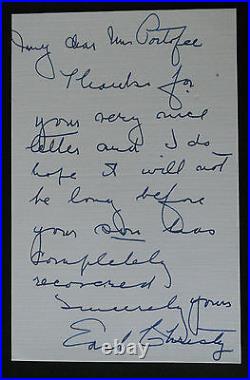 my dear Mrs Portofee
Thanks for
your very nice
letter and I do
hope it will not
be long before
your son has
completely
recovered
Sincerely yours
Earl Christy